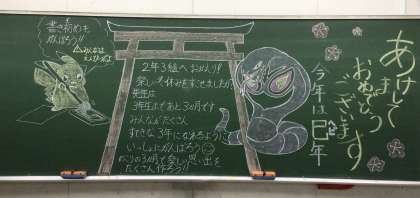 あけまして
おめでとう
ございます
今年は巳年
へび
2年3組へおかえり!!
楽しい冬休みをすごせましたか?
先生は
3年生まであと3か月です
みんながたくさん
すてきな3年になれるように
いっしょにがんばろう
のこりの3か月で楽しい思い出を
たくさん作ろう!!
書き初めも
がんばろう!!